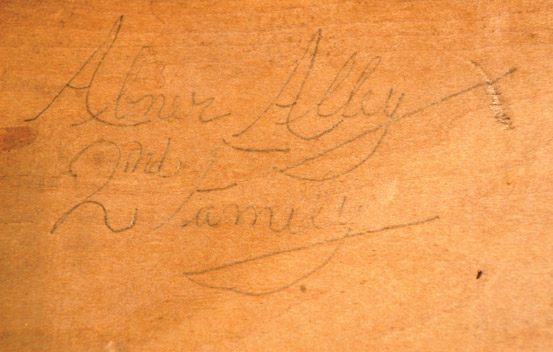 Abner Alley
2nd Family